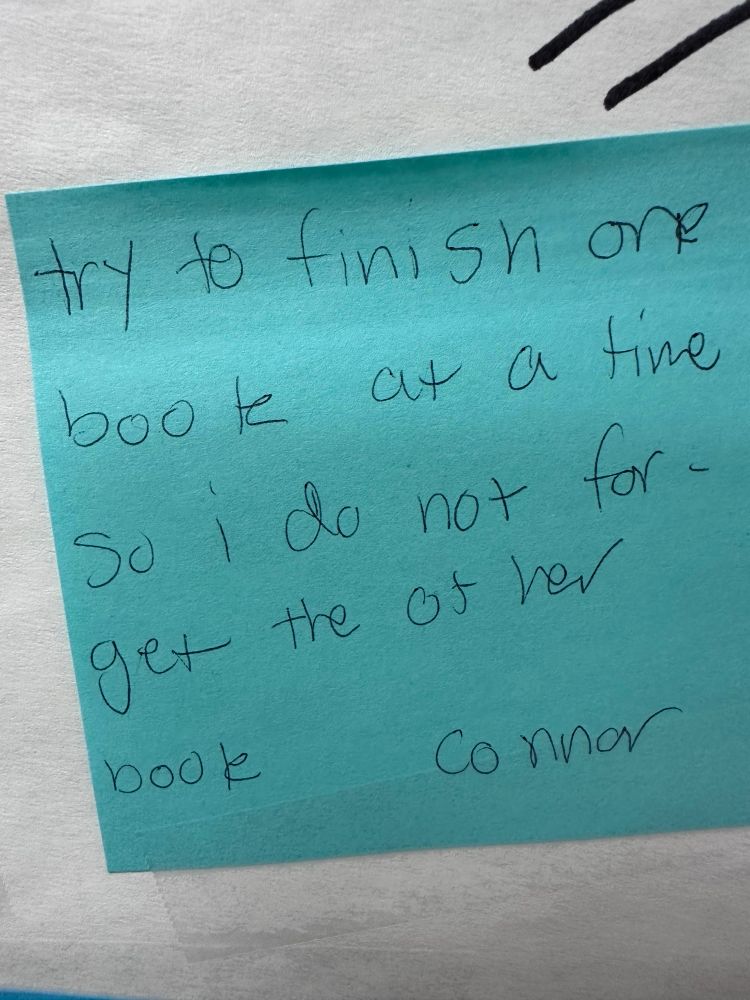 try to finish one
book at a time
so i do not for-
get the other
book Connor